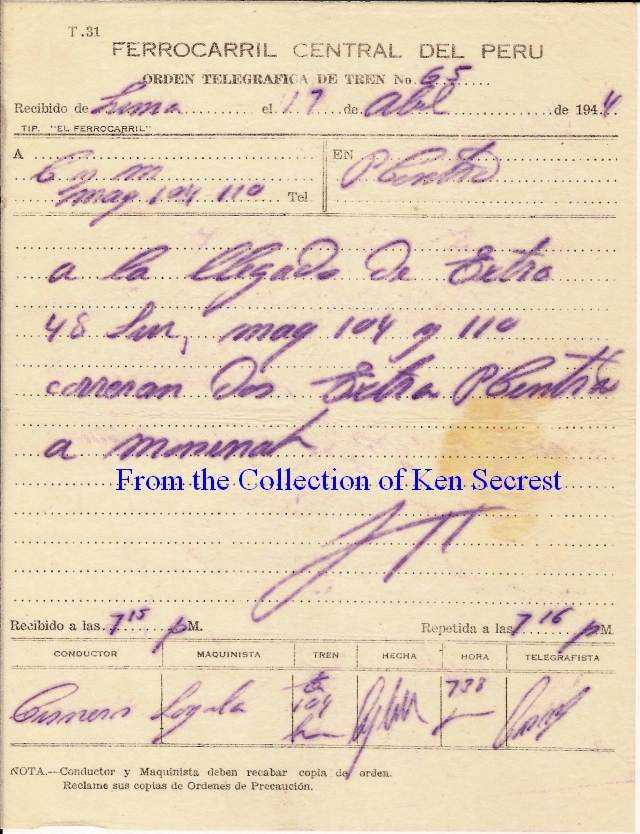 T.31
FERROCARRIL CENTRAL DEL PERU
ORDEN TELEGRAFICA DE TREN No. 65
Recibido de Lima el 17 de Abril de 1944
TIP. "EL FERROCARRIL"
A C y m EN P Centro
maq 104 110 Tel
a la llegada de Extra
48 Sur, maq 104 y 110
correran dos Extra P Centro
a
From the Collection of Ken Secrest
Recibido a las 7 15 p M. Repetida a las 7 16 p M
CONDUCTOR MAQUINISTA TREN HECHA HORA TELEGRAFISTA
Cisneros 104 738
NOTA.—Conductor y Maquinista deben recabar copia de orden.
Reclame sus copias de Ordenes de Precaución.